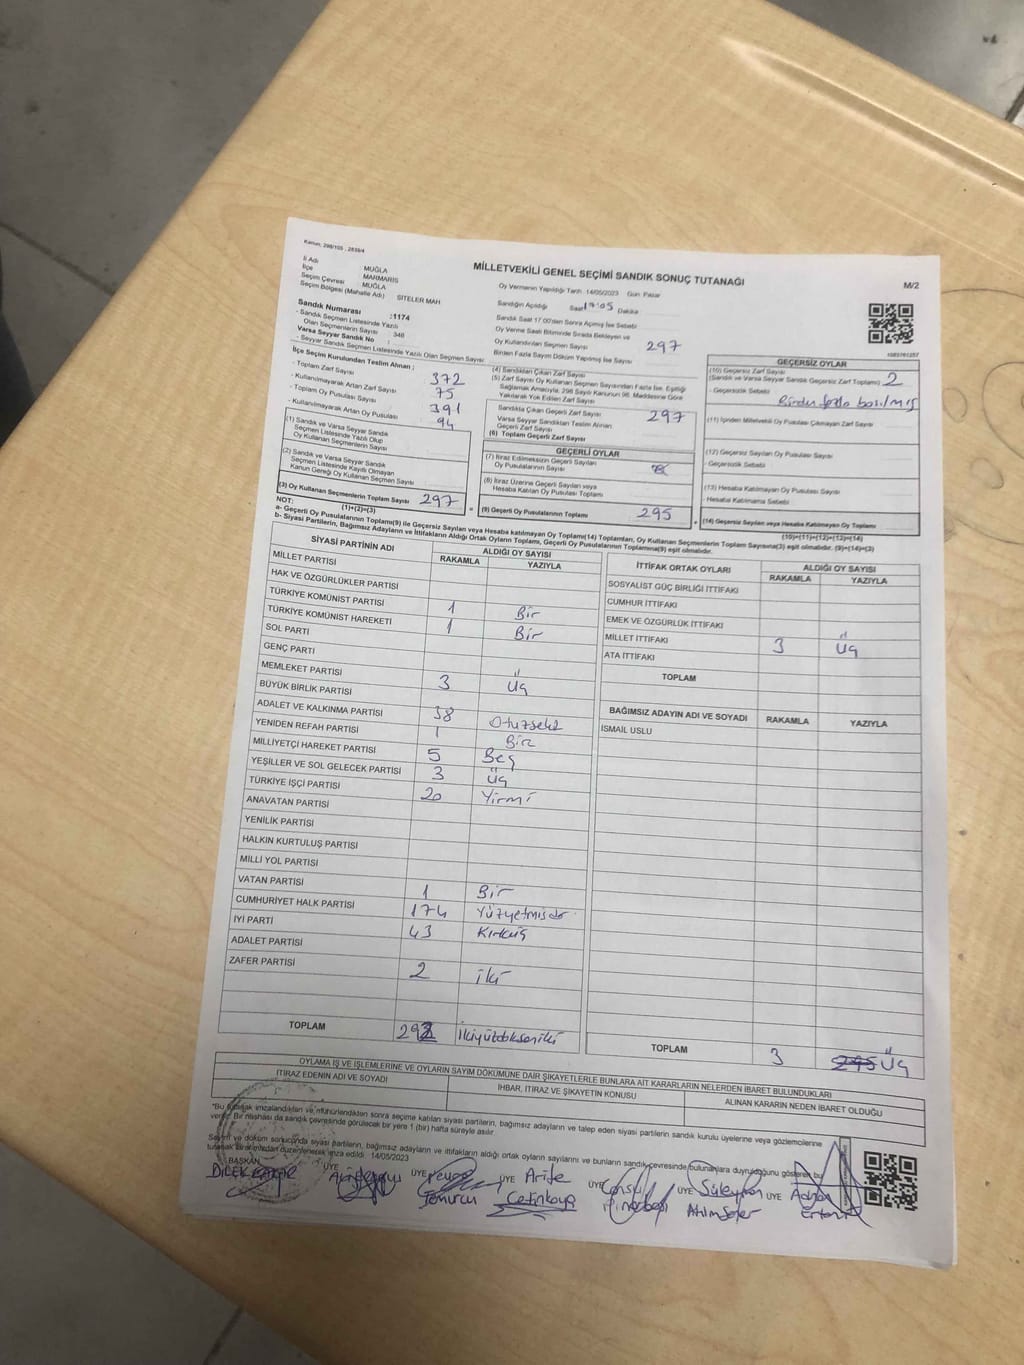 Kanun: 298/105 , 2839/4
MİLLETVEKİLİ GENEL SEÇİMİ SANDIK SONUÇ TUTANAĞI
M/2
İl Adı : MUĞLA
İlçe : MARMARİS
Seçim Çevresi : MUĞLA
Seçim Bölgesi (Mahalle Adı) : SİTELER MAH
Oy Vermenin Yapıldığı Tarih : 14/05/2023 Gün: Pazar
Sandığın Açıldığı Saat 17:05 Dakika
Sandık Saat 17:00'dan Sonra Açılmış İse Sebebi
Oy Verme Saati Bitiminde Sırada Bekleyen ve
Oy Kullandırılan Seçmen Sayısı 297
Birden Fazla Sayım Döküm Yapılmış İse Sayısı
Sandık Numarası :1174
- Sandık Seçmen Listesinde Yazılı
Olan Seçmenlerin Sayısı : 346
Varsa Seyyar Sandık No :
- Seyyar Sandık Seçmen Listesinde Yazılı Olan Seçmen Sayısı
İlçe Seçim Kurulundan Teslim Alınan ;
- Toplam Zarf Sayısı 372
- Kullanılmayarak Artan Zarf Sayısı 75
- Toplam Oy Pusulası Sayısı 391
- Kullanılmayarak Artan Oy Pusulası 94
(1) Sandık ve Varsa Seyyar Sandık
Seçmen Listesinde Yazılı Olup
Oy Kullanan Seçmenlerin Sayısı
(2) Sandık ve Varsa Seyyar Sandık
Seçmen Listesinde Kayıtlı Olmayan
Kanun Gereği Oy Kullanan Seçmen Sayısı
(3) Oy Kullanan Seçmenlerin Toplam Sayısı 297
(1)+(2)=(3)
(4) Sandıktan Çıkan Zarf Sayısı
(5) Zarf Sayısı Oy Kullanan Seçmen Sayısından Fazla İse, Eşitliği
Sağlamak Amacıyla; 298 Sayılı Kanunun 98. Maddesine Göre
Yakılarak Yok Edilen Zarf Sayısı
Sandıkta Çıkan Geçerli Zarf Sayısı 297
Varsa Seyyar Sandıktan Teslim Alınan
Geçerli Zarf Sayısı
(6) Toplam Geçerli Zarf Sayısı
GEÇERLİ OYLAR
(7) İtiraz Edilmeksizin Geçerli Sayılan
Oy Pusulalarının Sayısı
(8) İtiraz Üzerine Geçerli Sayılan veya
Hesaba Katılan Oy Pusulası Toplamı
(9) Geçerli Oy Pusulalarının Toplamı 295
GEÇERSİZ OYLAR
(10) Geçersiz Zarf Sayısı
(Sandık ve Varsa Seyyar Sandık Geçersiz Zarf Toplamı) 2
- Geçersizlik Sebebi Birden fazla basılmış
(11) İçinden Milletvekili Oy Pusulası Çıkmayan Zarf Sayısı
(12) Geçersiz Sayılan Oy Pusulası Sayısı
- Geçersizlik Sebebi
(13) Hesaba Katılmayan Oy Pusulası Sayısı
- Hesaba Katılmama Sebebi
(14) Geçersiz Sayılan veya Hesaba Katılmayan Oy Toplamı
(10)+(11)+(12)+(13)=(14)
NOT:
a- Geçerli Oy Pusulalarının Toplamı(9) ile Geçersiz Sayılan veya Hesaba katılmayan Oy Toplamı(14) Toplamları, Oy Kullanan Seçmenlerin Toplam Sayısına(3) eşit olmalıdır. (9)+(14)=(3)
b- Siyasi Partilerin, Bağımsız Adayların ve İttifakların Aldığı Ortak Oyların Toplamı, Geçerli Oy Pusulalarının Toplamına(9) eşit olmalıdır.
SİYASİ PARTİNİN ADI
ALDIĞI OY SAYISI
RAKAMLA YAZIYLA
MİLLET PARTİSİ
HAK VE ÖZGÜRLÜKLER PARTİSİ
TÜRKİYE KOMÜNİST PARTİSİ 1 Bir
TÜRKİYE KOMÜNİST HAREKETİ 1 Bir
SOL PARTİ
GENÇ PARTİ
MEMLEKET PARTİSİ 3 Üç
BÜYÜK BİRLİK PARTİSİ
ADALET VE KALKINMA PARTİSİ 38 Otuzsekiz
YENİDEN REFAH PARTİSİ 1 Bir
MİLLİYETÇİ HAREKET PARTİSİ 5 Beş
YEŞİLLER VE SOL GELECEK PARTİSİ 3 Üç
TÜRKİYE İŞÇİ PARTİSİ 20 Yirmi
ANAVATAN PARTİSİ
YENİLİK PARTİSİ
HALKIN KURTULUŞ PARTİSİ
MİLLİ YOL PARTİSİ
VATAN PARTİSİ 1 Bir
CUMHURİYET HALK PARTİSİ 174
İYİ PARTİ 43 Kırküç
ADALET PARTİSİ
ZAFER PARTİSİ 2 iki
TOPLAM 292 ikiyüzdokseniki
İTTİFAK ORTAK OYLARI
ALDIĞI OY SAYISI
RAKAMLA YAZIYLA
SOSYALİST GÜÇ BİRLİĞİ İTTİFAKI
CUMHUR İTTİFAKI
EMEK VE ÖZGÜRLÜK İTTİFAKI
MİLLET İTTİFAKI 3 Üç
ATA İTTİFAKI
TOPLAM
BAĞIMSIZ ADAYIN ADI VE SOYADI RAKAMLA YAZIYLA
İSMAİL USLU
TOPLAM 3 295 Üç
OYLAMA İŞ VE İŞLEMLERİNE VE OYLARIN SAYIM DÖKÜMÜNE DAİR ŞİKAYETLERLE BUNLARA AİT KARARLARIN NELERDEN İBARET BULUNDUKLARI
İTİRAZ EDENİN ADI VE SOYADI
İHBAR, İTİRAZ VE ŞİKAYETİN KONUSU
ALINAN KARARIN NEDEN İBARET OLDUĞU
*Bu tutanak imzalandıktan ve mühürlendikten sonra seçime katılan siyasi partilerin, bağımsız adayların ve talep eden siyasi partilerin sandık kurulu üyelerine veya gözlemcilerine
verilir. Bir nüshası da sandık çevresinde görülecek bir yere 1 (bir) hafta süreyle asılır.
Sayım ve döküm sonucunda siyasi partilerin, bağımsız adayların ve ittifakların aldığı ortak oyların sayılarını ve bunların sandık çevresinde bulunanlara duyrulduğunu gösteren bu
tutanak tarafımızdan düzenlenerek imza edildi. 14/05/2023
BAŞKAN ÜYE ÜYE ÜYE ÜYE ÜYE ÜYE
DİLEK
Arife Çetinkaya
Cansu
Süleyman
Adnan